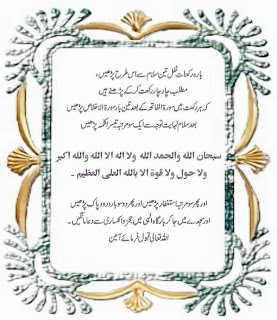 بارہ رکعات نفل تین سلام سے اس طرح پڑھیں،
مطلب چار چار رکعت کر کے پڑھنے ہیں
کہ ہر رکعت میں سورۃ الفاتحہ کے بعد تین بار سورۃ الاخلاص پڑھیں
بعد سلام نہایت توجہ سے ایک سو مرتبہ تیسرا کلمہ پڑھیں
سبحان الله والحمد الله ولا اله الا الله والله اكبر
ولا حول ولا قوة الا بالله العلى العظيم ۔
اور پھر سو مرتبہ استغفار پڑھیں اور پھر دو سو بار درود پاک پڑھیں
اور سجدے میں جا کر بارگاہ الہی میں عجز و انکساری سے دعا مانگیں۔
اللہ تعالی قبول فرمائے آمین